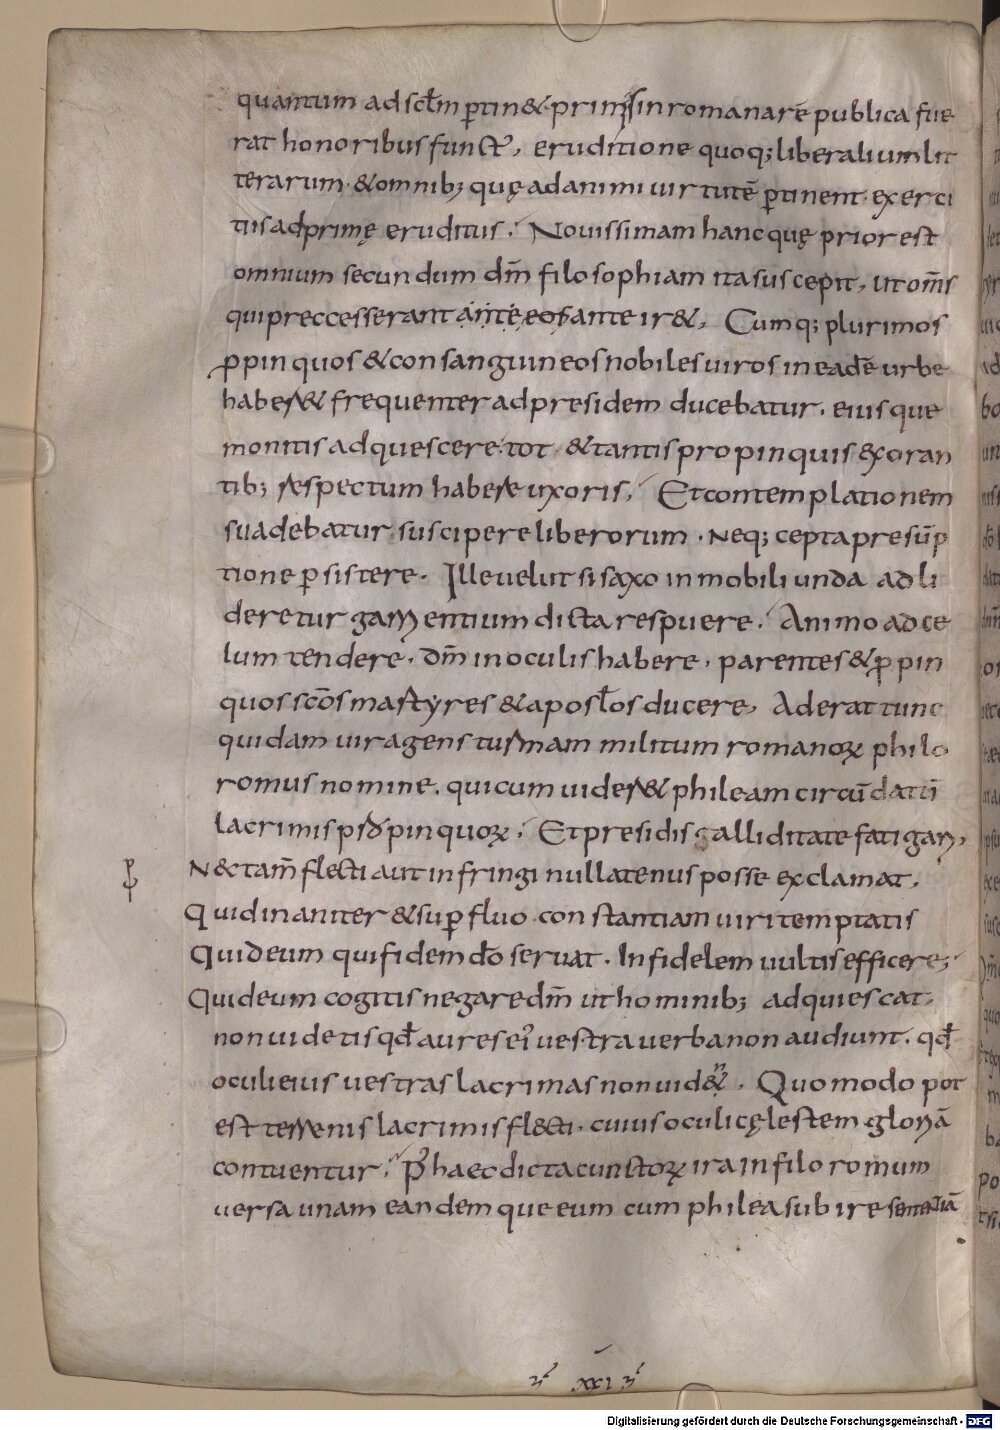 quantum ad sclm ꝑtin& primis in romana rē publica fue
rat honoribus functꝰ, eruditione quoq; liberalium lit
terarum· &omnib; quę ad animi uirtutē ꝑtinent· exerci
tiis ad prime eruditus. Nouissimam hanc quę prior est
omnium secundum dm̄ filosophiam ita suscepit, ut om̄s
qui preccesserant ante eos anteir&, Cumq; plurimos
ꝓpinquos & consanguineos nobiles uiros in eadē urbe
haber& frequenter ad presidem ducebatur· eiusque
monitis adquescere· tot & tantis propinquis exoran
tib; respectum habere uxoris, Et contemplationem
suadebatur suscipere liberorum · Neq; cepta presūp
tione ꝑsistere· Ille uelut si saxo inmobili unda adli
deretur garrientium dicta respuere, Animo ad ce
lum tendere· dm̄ in oculis habere, parentes & ꝓpin
quos scōs martyres & apostlos ducere, Aderat tunc
quidam uir agens turmam militum romanoꝝ philo
romus nomine, qui cum uider& phileam circūdatū
lacrimis ꝓpinquoꝝ, Et presidis calliditate fatigari,
N& tam̄ flecti aut infringi nullatenus posse exclamat,
Quid inaniter & suꝑfluo constantiam uiri temptatis
Quid eum qui fidem dō seruat· Infidelem uultis efficere;
Quid eum cogitis negare dm̄ ut hominib; adquiescat,
non uidetis qđ aures ei uestra uerba non audiunt· qđ
oculi eius uestras lacrimas non uid&, Quomodo pot
est terrenis lacrimis flecti· cuius oculi cęlestem gloriā
contuentur, Pꝰ haec dicta cunctoꝝ ira in filoromum
uersa unam eandemque eum cum philea subire sententiā
XXI
Digitalisierung gefördert durch die Deutsche Forschungsgemeinschaft - DFG